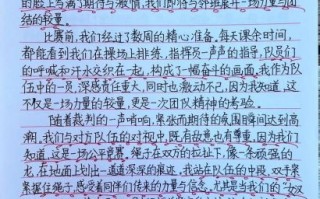 的脸上写满了期待与激情，我们即将与邻班展开一场力量与团
结的较量。
比赛前，我们经过了数周的精心准备。每天课余时间，
都能看到我们在操场上排练，指挥员一声声的指导，队员们
的呼喊和汗水交织在一起，构成了一幅奋斗的画面。我作为队
伍中的一员，深感责任重大，同时也激动不已，因为我知道，这
不仅是一场力量的较量，更是一次团队精神的考验。
随着裁判的一声哨响，紧张而期待的氛围瞬间达到高
潮。我们与对方队伍的对视中，既有敌意也有尊重，因为我们
知道，这是一场公平竞赛。绳子在双方的拉扯下，像一条顽强的
龙，在地面上划出一道道深深的痕迹。我站在队伍的中段，双手紧
紧握住绳子，感受着同伴们传来的力量与信念。尤其是当我们的